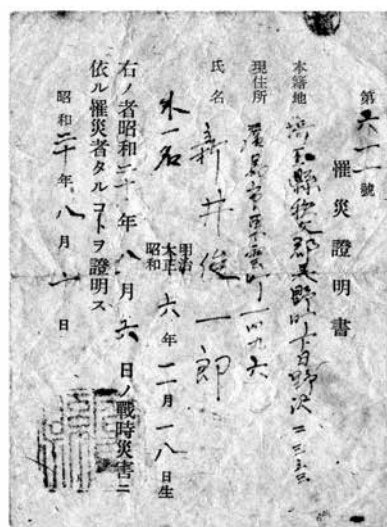 第六一一號
罹災證明書
本籍地 埼玉縣秩父郡 野町下日野沢二三五三
現住所 廣島市東雲町一四九六
氏名 新井俊一郎
外一名
明治
大正
昭和
六年一一月一八日生
右ノ者昭和二十年八月六日ノ戰時災害ニ
依ル罹災者タルコトヲ證明ス
昭和二十年八月 日